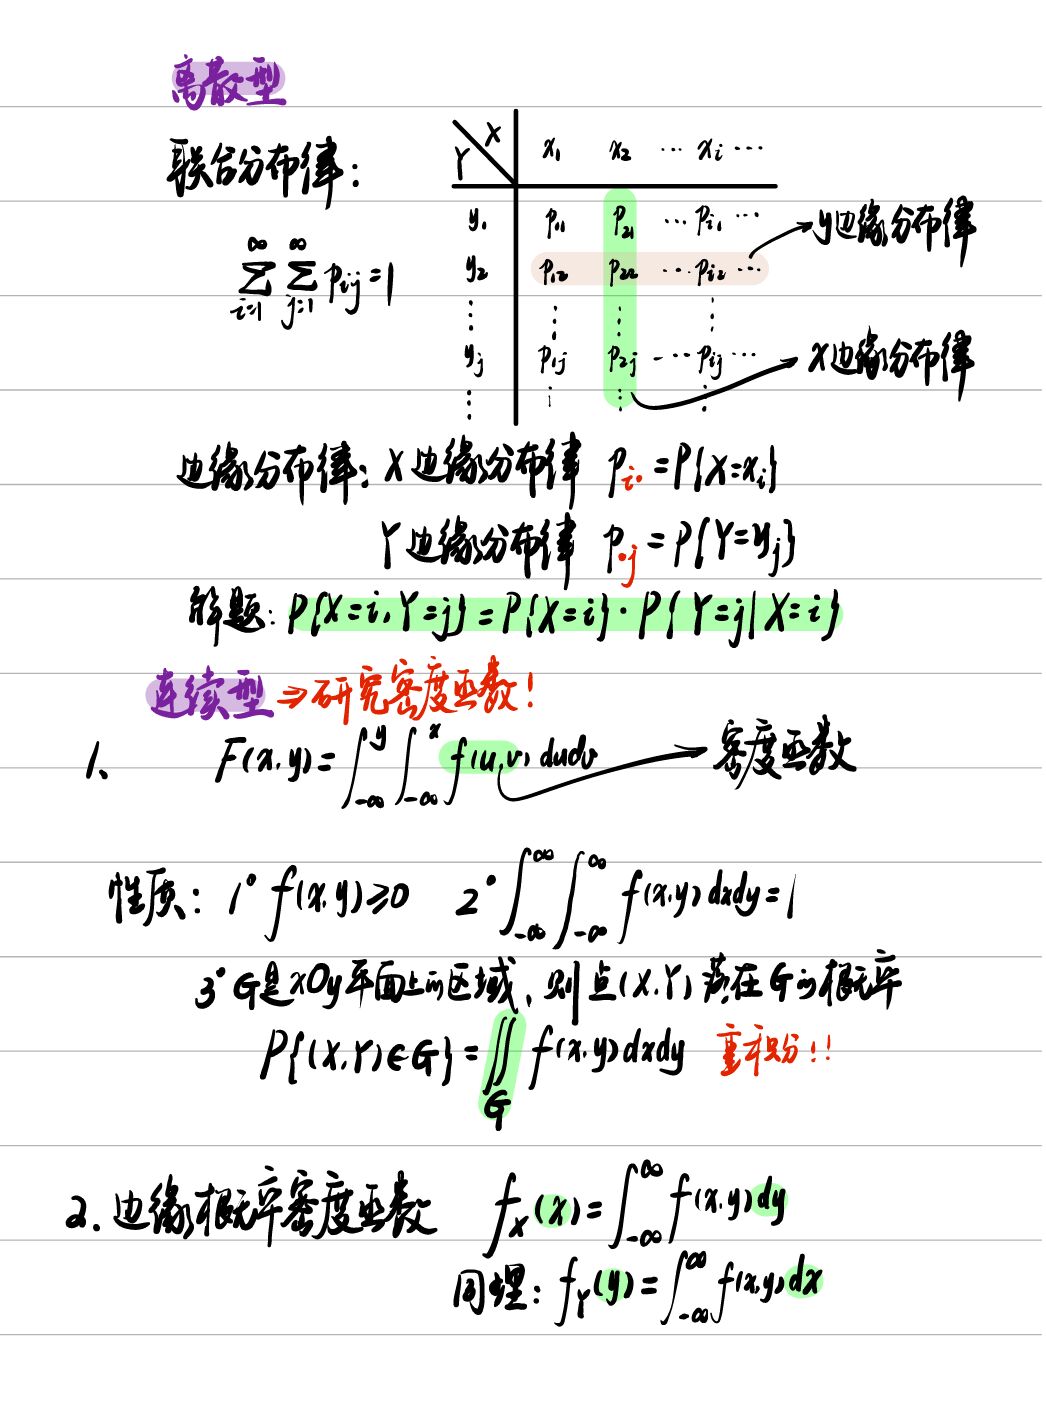 离散型
联合分布律:
Y X x₁ x₂ ⋯ xᵢ ⋯
y₁ p₁₁ p₂₁ ⋯ pᵢ₁ ⋯ → y边缘分布律
y₂ p₁₂ p₂₂ ⋯ pᵢ₂ ⋯
∞ ∞
∑ ∑ pᵢⱼ = 1
i=1 j=1
⋮ ⋮ ⋮ ⋮
yⱼ p₁ⱼ p₂ⱼ ⋯ pᵢⱼ ⋯ → X边缘分布律
⋮ ⋮ ⋮ ⋮
边缘分布律: X边缘分布律 pᵢ. = P{X=xᵢ}
Y边缘分布律 p.ⱼ = P{Y=yⱼ}
解题: P{X=i,Y=j} = P{X=i}·P{Y=j|X=i}
连续型 ⇒ 研究密度函数!
1、 F(x,y) = ∫_{-∞}^{y} ∫_{-∞}^{x} f(u,v) dudv → 密度函数
性质: 1° f(x,y)≥0 2° ∫_{-∞}^{∞} ∫_{-∞}^{∞} f(x,y) dxdy = 1
3° G是xOy平面上的区域、则点(X,Y)落在G的概率
P{(X,Y)∈G} = ∬_G f(x,y) dxdy 重积分!!
2. 边缘概率密度函数 f_X(x) = ∫_{-∞}^{∞} f(x,y) dy
同理: f_Y(y) = ∫_{-∞}^{∞} f(x,y) dx